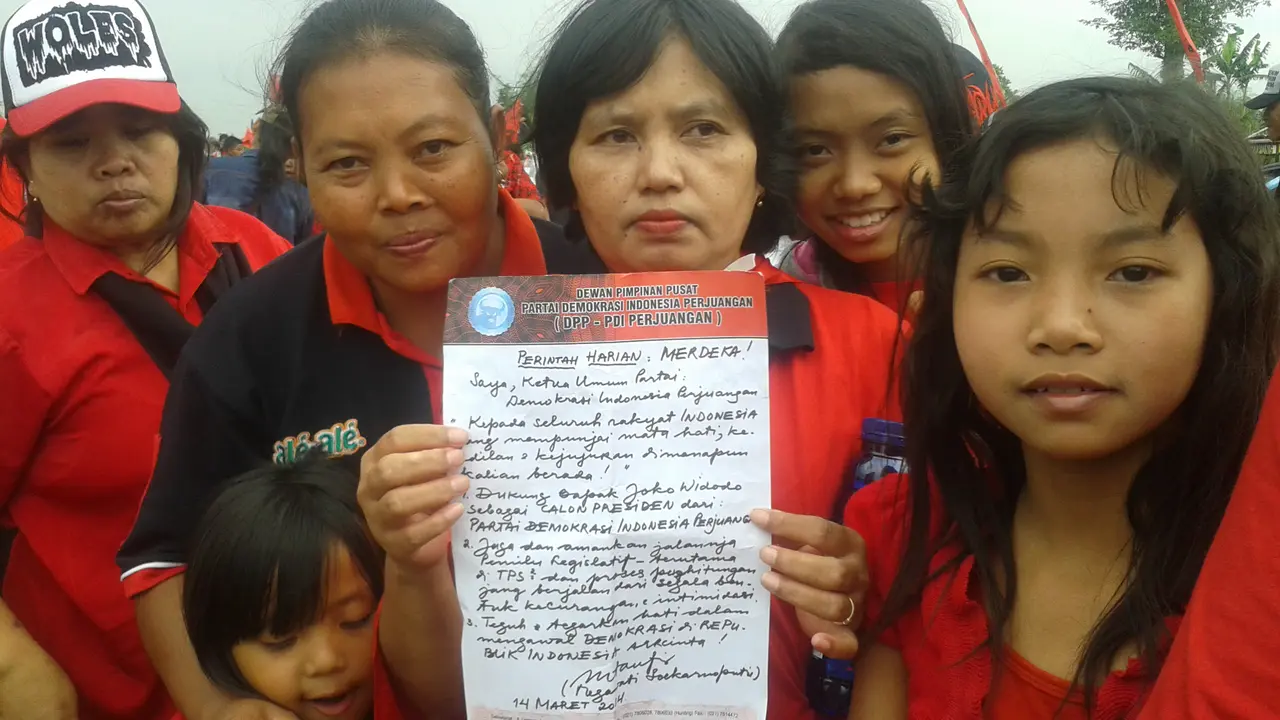 WOLES
DEWAN PIMPINAN PUSAT
PARTAI DEMOKRASI INDONESIA PERJUANGAN
( DPP - PDI PERJUANGAN )
PERINTAH HARIAN : MERDEKA !
Saya, Ketua Umum Partai :
Demokrasi Indonesia Perjuangan
" Kepada seluruh rakyat INDONESIA
yang mempunjai mata hati, ke-
adilan & kejujuran dimanapun
kalian berada ! "
1. Dukung Bapak Joko Widodo
sebagai CALON PRESIDEN dari :
PARTAI DEMOKRASI INDONESIA PERJUANG
2. Jaga dan amankan jalannja
Pemilu Legislatif - terutama
di TPS² dan proses penghitungan
jang berjalan dari segala ben-
tuk kecurangan, & intimidasi
3. Teguh & tegarkan hati dalam
mengawal DEMOKRASI di REPU-
BLIK INDONESIA tercinta !
(Megawati Soekarnoputri)
14 MARET 2014
alé-alé